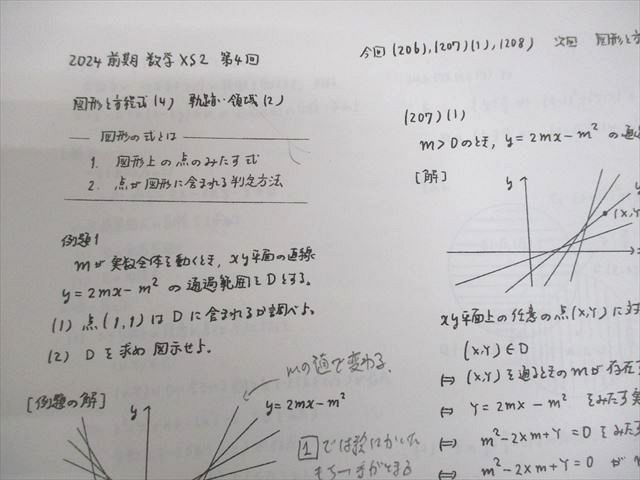 2024 前期 数学 XS2 第4回
図形と方程式(4) 軌跡・領域(2)
図形の式とは
1. 図形上の点のみたす式
2. 点が図形に含まれる判定方法
例題1
mが実数全体を動くとき、xy平面の直線
y=2mx-m² の通過範囲をDとする。
(1) 点(1,1)はDに含まれるか調べよ。
(2) Dを求め図示せよ。
[例題の解]
mの値で変わる。
y
y=2mx-m²
1では
今回 (206),(207)(1),(208) 次回 図形と方
(207)(1)
m>0のとき, y=2mx-m² の通過
[解]
y
(x,Y
xy平面上の任意の点(X,Y)に対
(X,Y)∈D
⇔ (X,Y)を通るときのmが存在
⇔ Y=2mX-m² をみたす実
⇔ m²-2Xm+Y=0をみた
⇔ m²-2Xm+Y=0 が